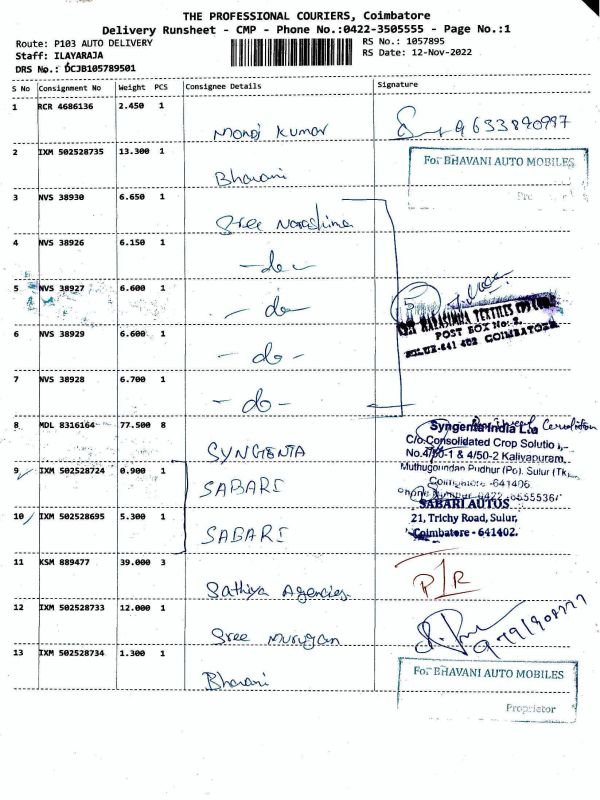 THE PROFESSIONAL COURIERS, Coimbatore
Delivery Runsheet - CMP - Phone No.:0422-3505555 - Page No.:1
Route: P103 AUTO DELIVERY
RS No.: 1057895
Staff: ILAYARAJA
RS Date: 12-Nov-2022
DRS No.: DCJB105789501
S No Consignment No Weight PCS Consignee Details Signature
1 RCR 4686136 2.450 1
Monoj Kumar 9633890997
2 IXM 502528735 13.300 1
For BHAVANI AUTO MOBILES
Bharani
3 NVS 38930 6.650 1
Sree Narashima
4 NVS 38926 6.150 1
- do -
5 NVS 38927 6.600 1
- do - 5
SREE NARASIMHA TEXTILES
6 NVS 38929 6.600 1
POST BOX No:-2,
SULUR-641 402 COIMBATORE
- do -
7 NVS 38928 6.700 1
- do -
8 MDL 8316164 77.500 8
Syngenta India Ltd
C/o.Consolidated Crop Solutio
SYNGENTA
No.4/50-1 & 4/50-2 Kaliyapuram,
9 IXM 502528724 0.900 1
Muthugoundan Pudhur (Po). Sulur (Tk),
Coimbatore -641406
SABARI
SABARI AUTOS
10 IXM 502528695 5.300 1
21, Trichy Road, Sulur,
SABARI
Coimbatore - 641402.
11 KSM 889477 39.000 3
Sathiya Agencies P/R
12 IXM 502528733 12.000 1
Sree Murugan
13 IXM 502528734 1.300 1
For BHAVANI AUTO MOBILES
Bharani
Proprietor